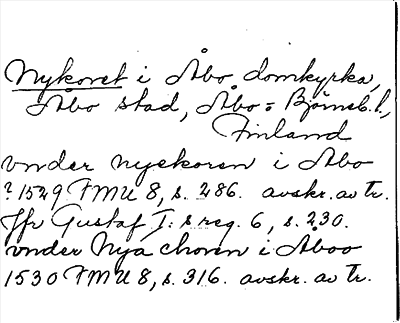 Nykoret i Åbo domkyrka,
Åbo stad, Åbo = Björneb. l.,
Finland
vnder nyekoren i Abo
? 1529 FMU 8, s. 286. avskr. av tr.
Jfr Gustaf I: s reg. 6, s. 230.
vnder Nya choren i Åboo
1530 FMU 8, s. 316. avskr. av tr.